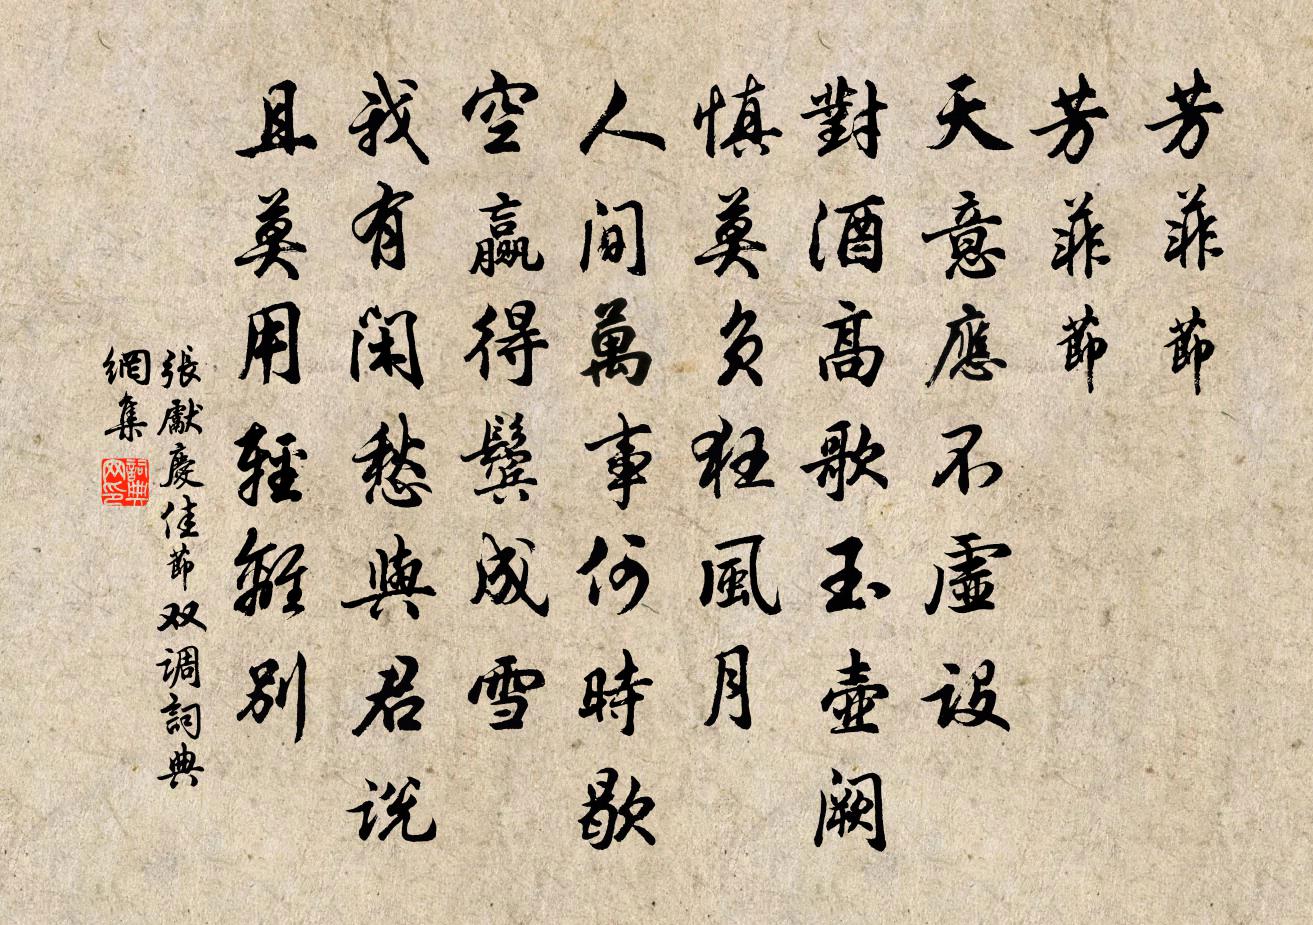 芳菲節
芳菲節
天意應不虛設
對酒高歌玉壺闕
慎莫負狂風月
人間萬事何時歇
空贏得鬓成雪
我有閑愁與君說
且莫用輕離別
張獻慶佳節双调詞典
網集
詞典
网印